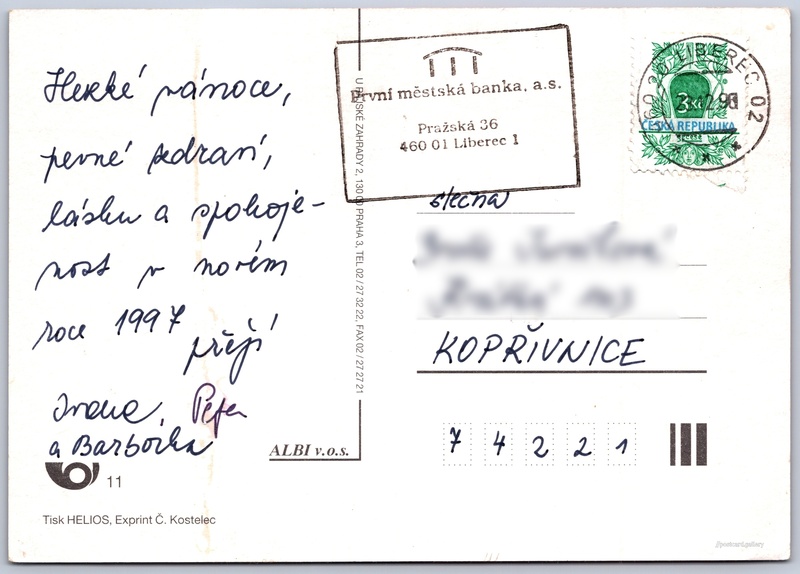 Hezké vánoce,
pevné zdraví,
lásku a spokoje-
nost v novém
roce 1997
přejí
Ivana, Peter
a Barborka
11
Tisk HELIOS, Exprint Č. Kostelec
ALBI v.o.s.
U RAJSKÉ ZAHRADY 2, 130 00 PRAHA 3, TEL 02 / 27 32 22, FAX 02 / 27 27 21
První městská banka, a.s.
Pražská 36
460 01 Liberec 1
LIBEREC 02
3 Kč
ČESKÁ REPUBLIKA
slečna
KOPŘIVNICE
7 4 2 2 1
postcard.gallery